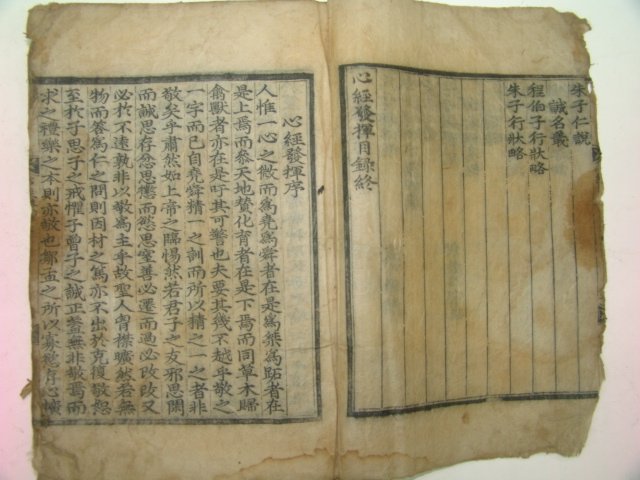 朱子仁說
誠名義
程伯子行狀略
朱子行狀略
心經發揮目錄終
心經發揮序
人惟一心之微而為堯為舜者在是為桀為跖者在
是上焉而參天地贊化育者在是下焉而同草木歸
禽獸者亦在是吁其可警也夫要其幾不越乎敬之
一字而已自堯舜精一之訓而所以精之一之者非
敬矣乎肅然如上帝之臨惕然若君子之友邪思閑
而誠思存忿思懲而慾思窒善必遷而過必改改又
必於不遠孰非以敬為主乎故聖人胷襟曠然若無
物而答為仁之問則因材之篤亦不出於克復敬恕
至於子思子之戒懼子曾子之誠正蓋無非敬焉而
求之禮樂之本則亦敬也鄒孟之所以寡慾存心擴